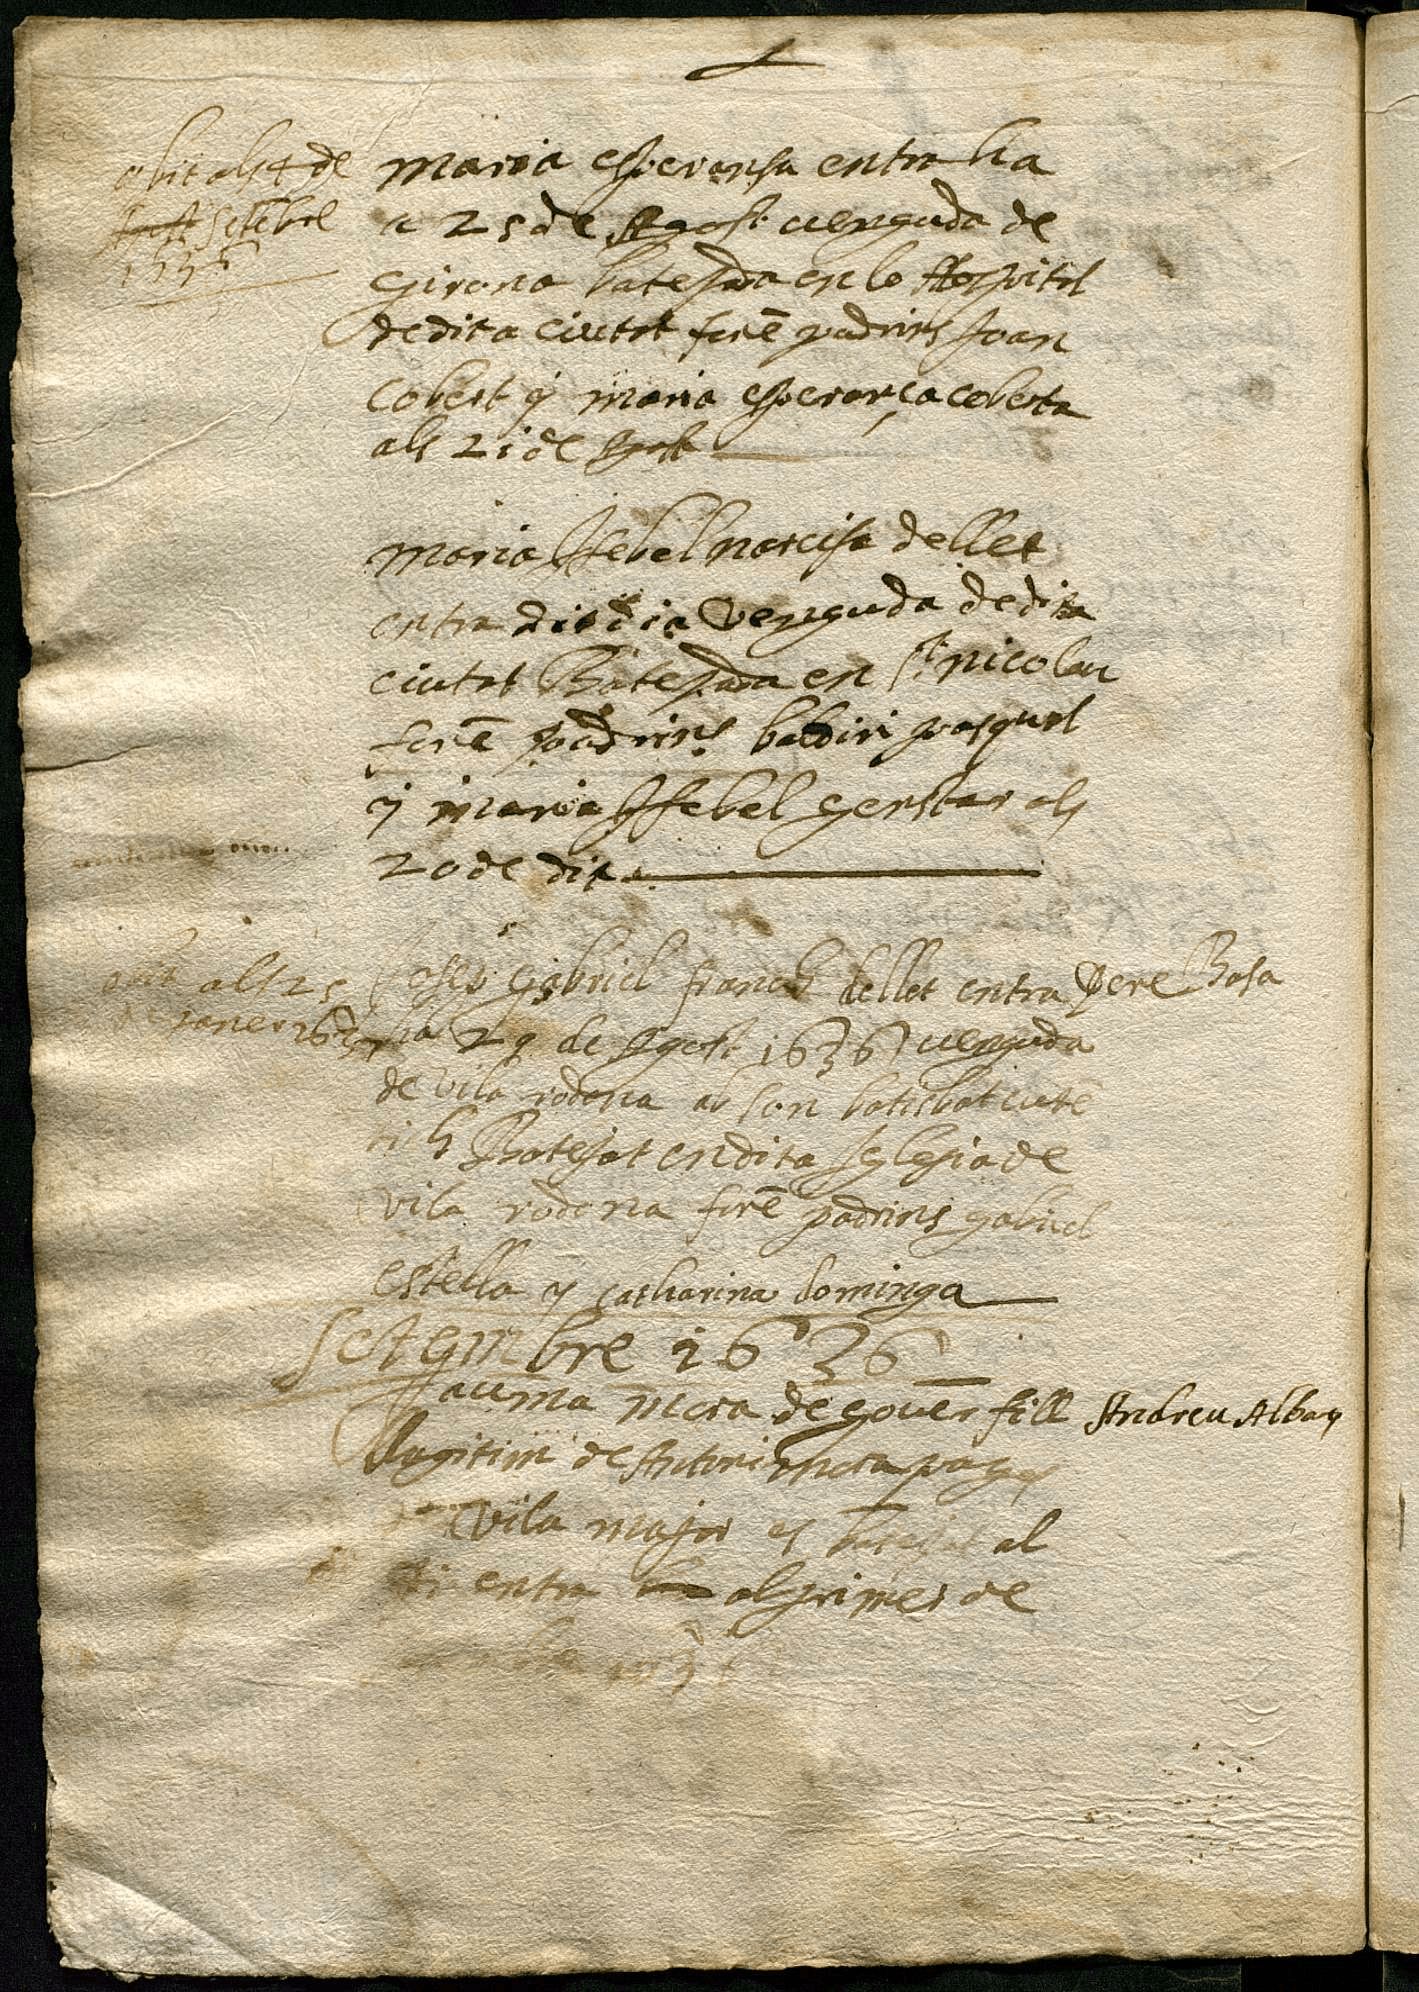 obit als 4 de
Agost Setēbre
1636
maria esperansa entra ha
a 25 de Agost uenguda de
Girona batejada en lo Hospital
de dita ciutat forē padrins Joan
Cobert y maria esperança coberta
als 21 de Agost
maria Isebel narcisa dellet
entra dit dia venguda de dita
ciutat Batejada en St nicolau
forē padrins baldiri pasqual
y maria Isebel als
20 de dit
obit als 25
de janer 163
Josep Gabriel dellet entra
ha 29 de Agost 1636 uenguda
de vila rodona ab son
Batejat en dita Iglesia de
vila rodona forē padrins gabriel
estella y catharina dominga
Pere Bosa
Setembre 1636
Jauma mora de gouer fill
llegitim de Antoni mora pages
vila major es batejat al
entra als primer de
Andreu Albay